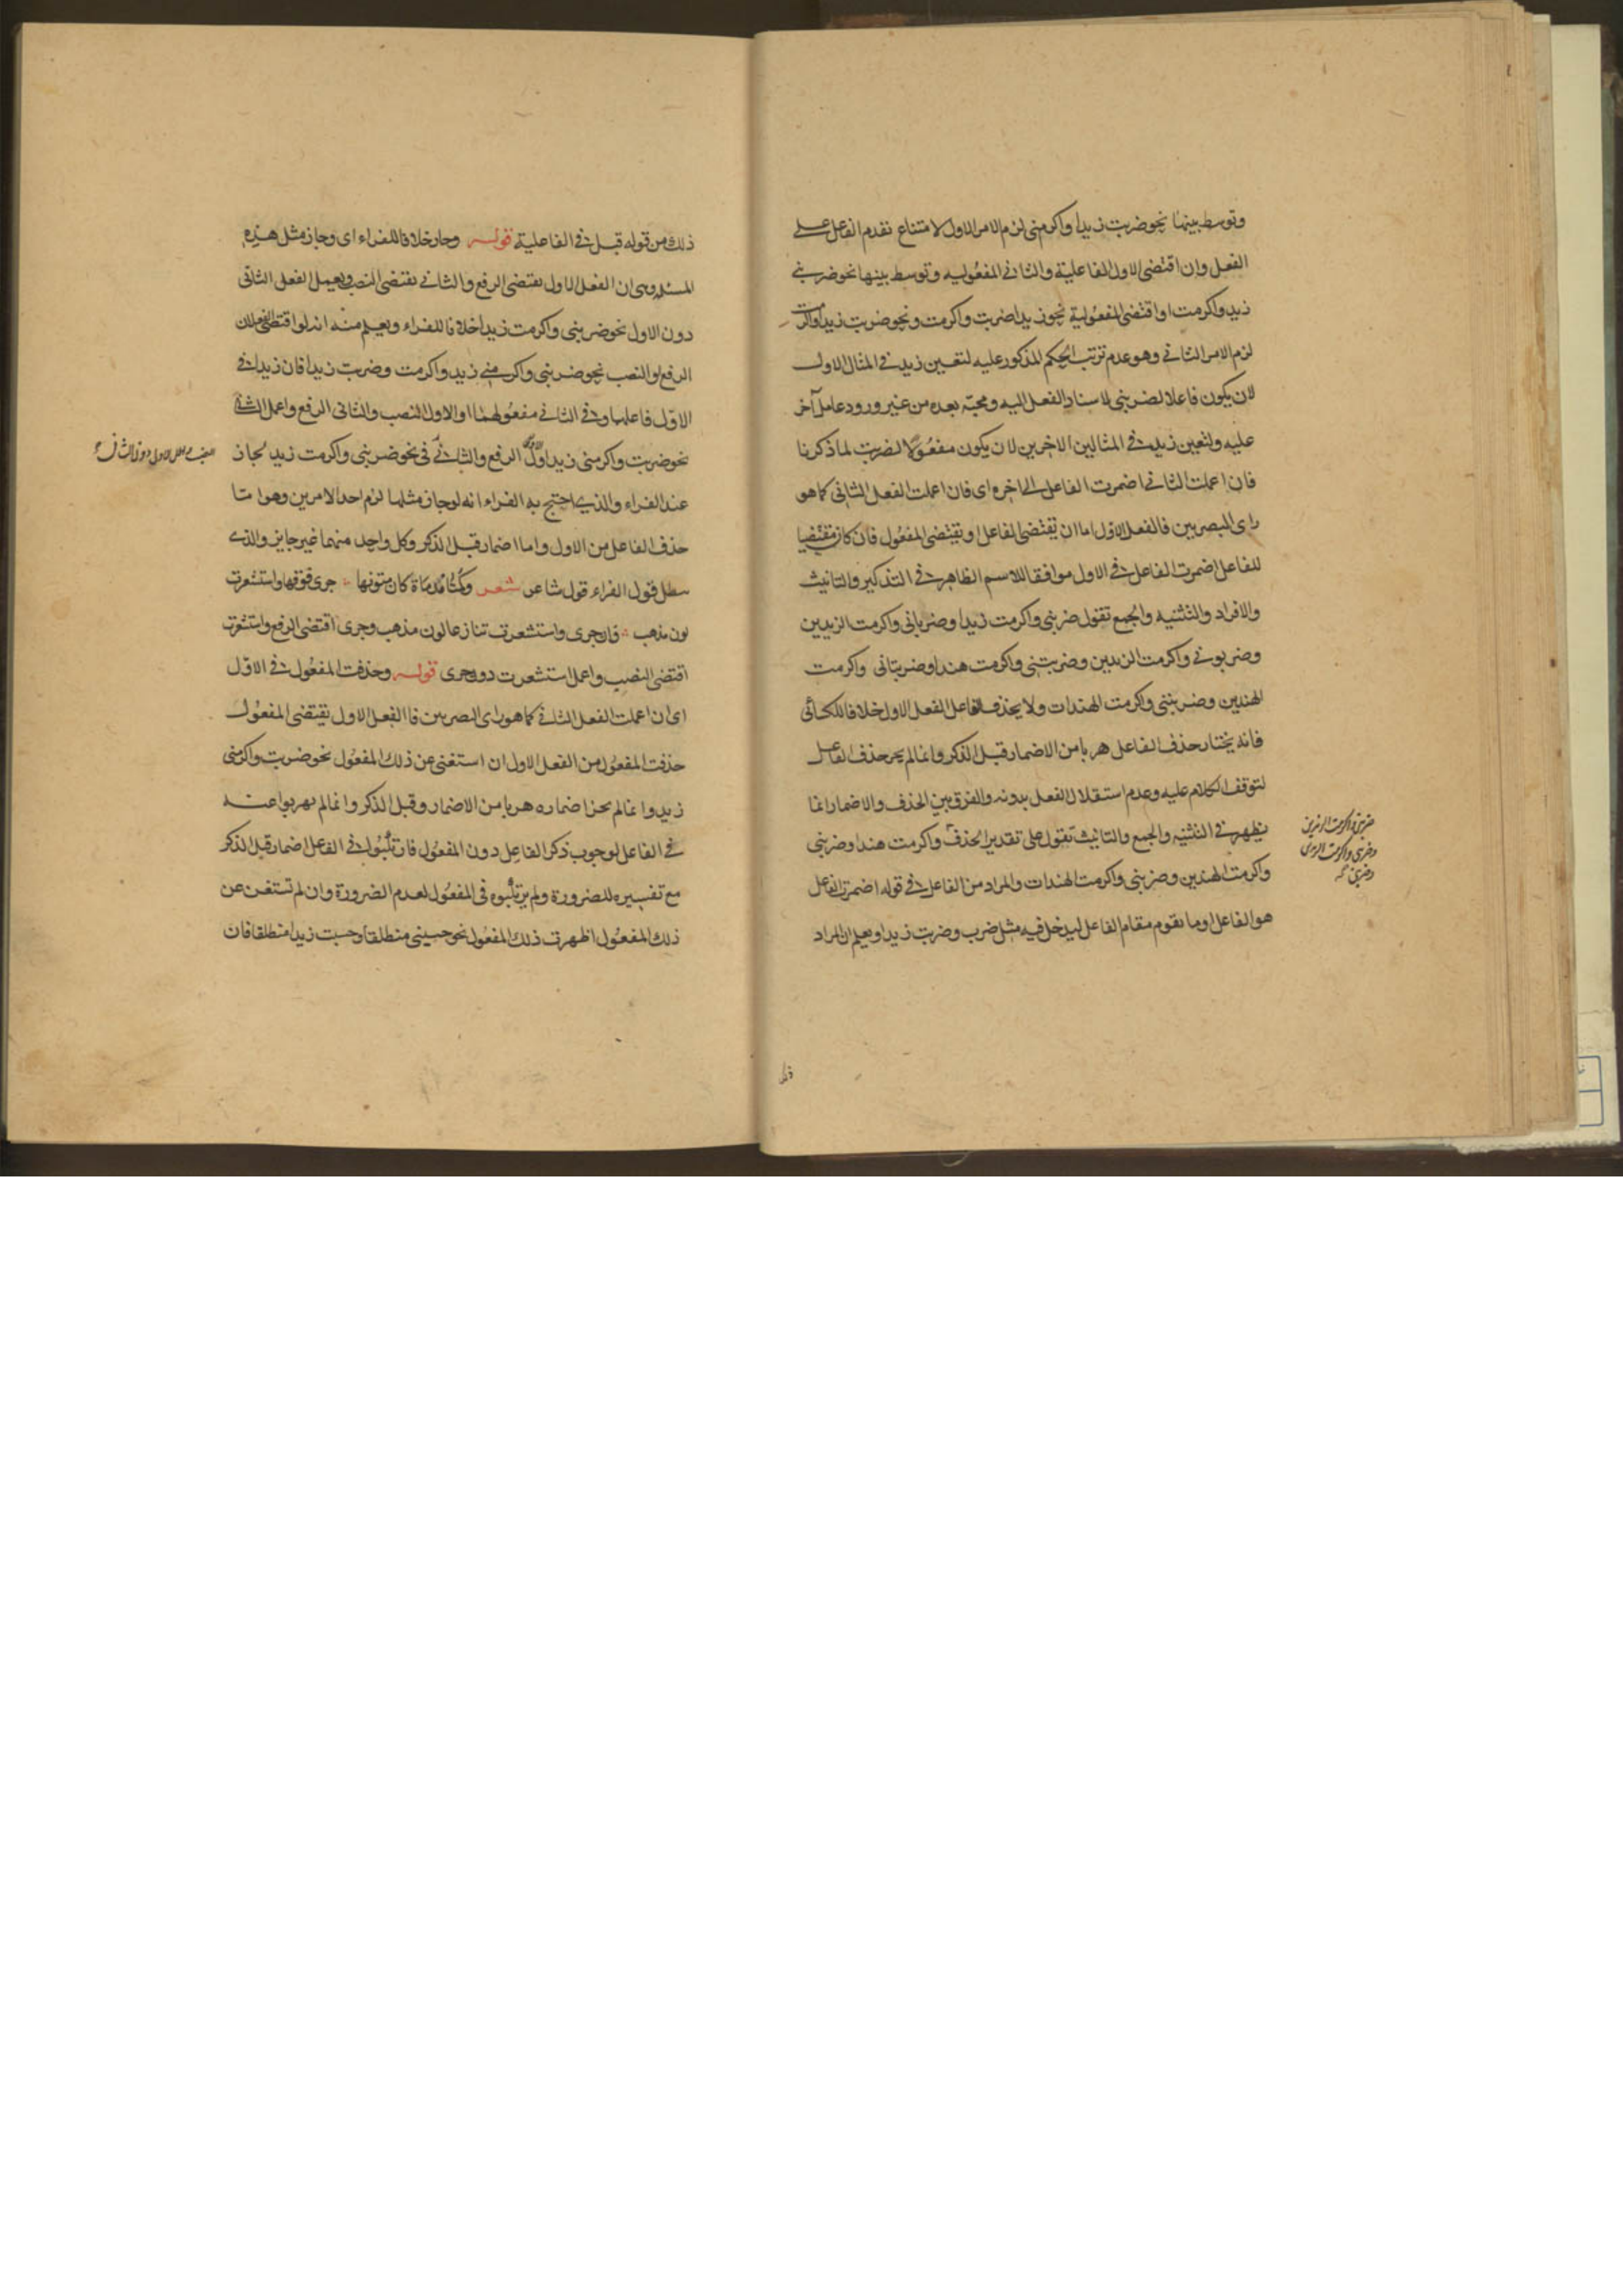 وتوسط بينهما نحو ضربت زيدا واكرمنى لزم الامر الاول لامتناع تقدم الفاعل على
الفعل وان اقتضى الاول الفاعلية والثانى المفعوليه وتوسط بينهما نحو ضربنى
زيد واكرمت او اقتضى المفعولية نحو زيدا ضربت واكرمت ونحو ضربت زيدا واكرمت
لزم الامر الثانى وهو عدم ترتب الحكم المذكور عليه لتعين زيد فى المثال الاول
لان يكون فاعلا لضربنى لاسناد الفعل اليه ومجيئه بعده من غير ورود عامل آخر
عليه ولتعين زيد فى المثالين الاخرين لان يكون مفعولا لضربت لما ذكرنا
فان اعملت الثانى اضمرت الفاعل الى اخره اى فان اعملت الفعل الثانى كما هو
راى البصريين فالفعل الاول اما ان يقتضى الفاعل او يقتضى المفعول فان كان مقتضيا
للفاعل اضمرت الفاعل فى الاول موافقا للاسم الظاهر فى التذكير والتانيث
والافراد والتثنيه والجمع تقول ضربنى واكرمت زيدا وضربانى واكرمت الزيدين
وضربونى واكرمت الزيدين وضربتنى واكرمت هندا وضربتانى واكرمت
الهندين وضربننى واكرمت الهندات ولا يحذف الفاعل الفعل الاول خلافا للكسائى
فانه يختار حذف الفاعل هربا من الاضمار قبل الذكر وانما لم يجز حذف الفاعل
لتوقف الكلام عليه وعدم استقلال الفعل بدونه والفرق بين الحذف والاضمار انما
يظهر فى التثنيه والجمع والتانيث تقول على تقدير الحذف واكرمت هندا وضربنى
ضربنى واكرمت الزيدين
وضربنى واكرمت الزيدين
وضربنى
واكرمت الهندين وضربنى واكرمت الهندات والمراد من الفاعل فى قوله اضمرت الفاعل
هو الفاعل او ما يقوم مقام الفاعل ليدخل فيه مثل ضرب وضربت زيدا ويعلم ان المراد
ذلك من قوله قبل فى الفاعلية قوله وجاز خلافا للفراء اى وجاز مثل هذه
المسئله وهى ان الفعل الاول يقتضى الرفع والثانى يقتضى النصب ويعمل الفعل الثانى
دون الاول نحو ضربنى واكرمت زيدا خلافا للفراء ويعلم منه انه لو اقتضى الفعلان
الرفع او النصب نحو ضربنى واكرمنى زيد واكرمت وضربت زيدا فان زيدا فى
الاول فاعلهما وفى الثانى مفعولهما او الاول النصب والثانى الرفع واعمل الثانى
نحو ضربت واكرمنى زيد او الاول الرفع والثانى فى نحو ضربنى واكرمت زيد لجاز
عند الفراء والذى احتج به الفراء انه لو جاز مثلها لزم احد الامرين وهو اما
حذف الفاعل من الاول واما اضمار قبل الذكر وكل واحد منهما غير جايز والذى
يبطل قول الفراء قول شاعر شعر وكمتا مدماة كان متونها جرى فوقها واستشعرت
لون مذهب فان جرى واستشعرت تنازعا لون مذهب وجرى اقتضى الرفع واستشعرت
اقتضى النصب واعمل استشعرت دون جرى قوله وحذفت المفعول فى الاول
اى ان اعملت الفعل الثانى كما هو راى البصريين فاالفعل الاول يقتضى المفعول
حذفت المفعول من الفعل الاول ان استغنى عن ذلك المفعول نحو ضربت واكرمنى
زيد وانما لم يجز اضماره هربا من الاضمار وقبل الذكر وانما لم يهربوا عنه
فى الفاعل لوجوب ذكر الفاعل دون المفعول فارتكبوا فى الفاعل اضمار قبل الذكر
مع تفسيره للضرورة ولم يرتكبوه فى المفعول لعدم الضرورة وان لم تستغن عن
ذلك المفعول اظهرت ذلك المفعول نحو حسبنى منطلقا وحسبت زيدا منطلقا فان